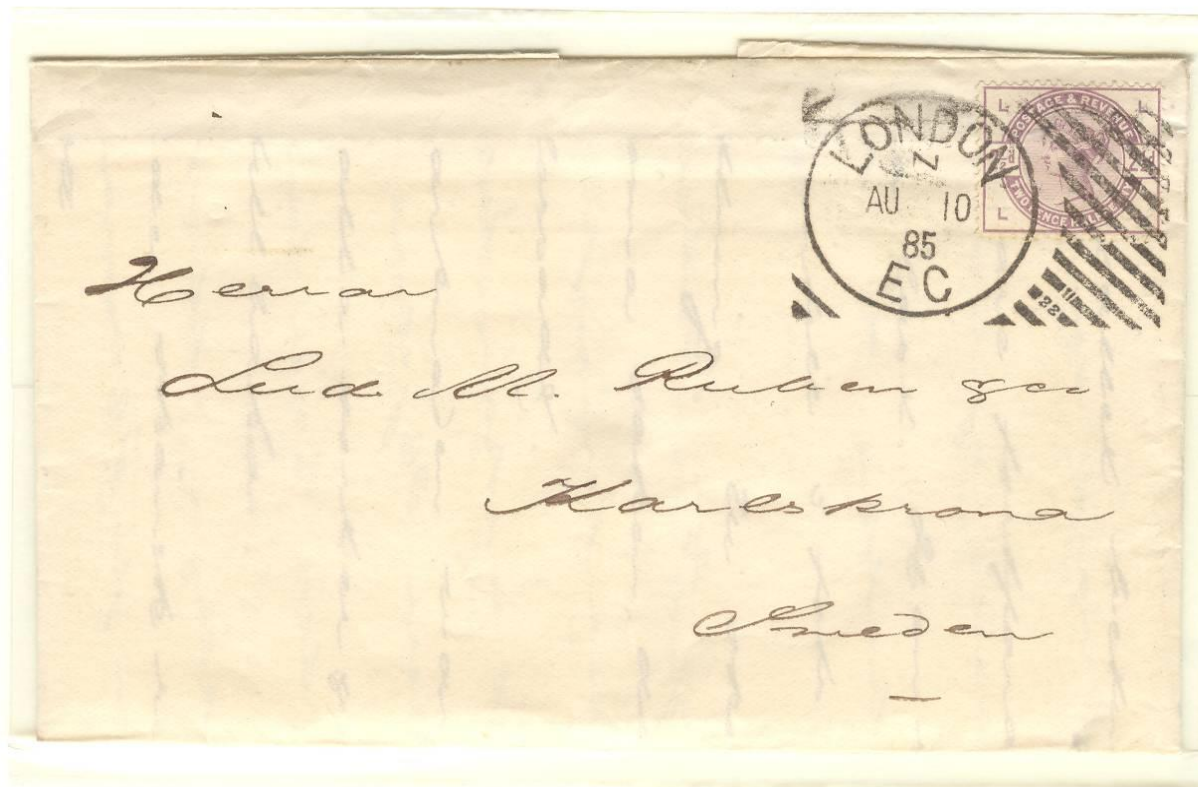 LONDON
Z
AU 10
85
E C
22
L L
POSTAGE & REVENUE
TWO PENCE HALFPENNY
L
Herrar
Lud. M. Ruben & Co
Karlskrona
Sweden